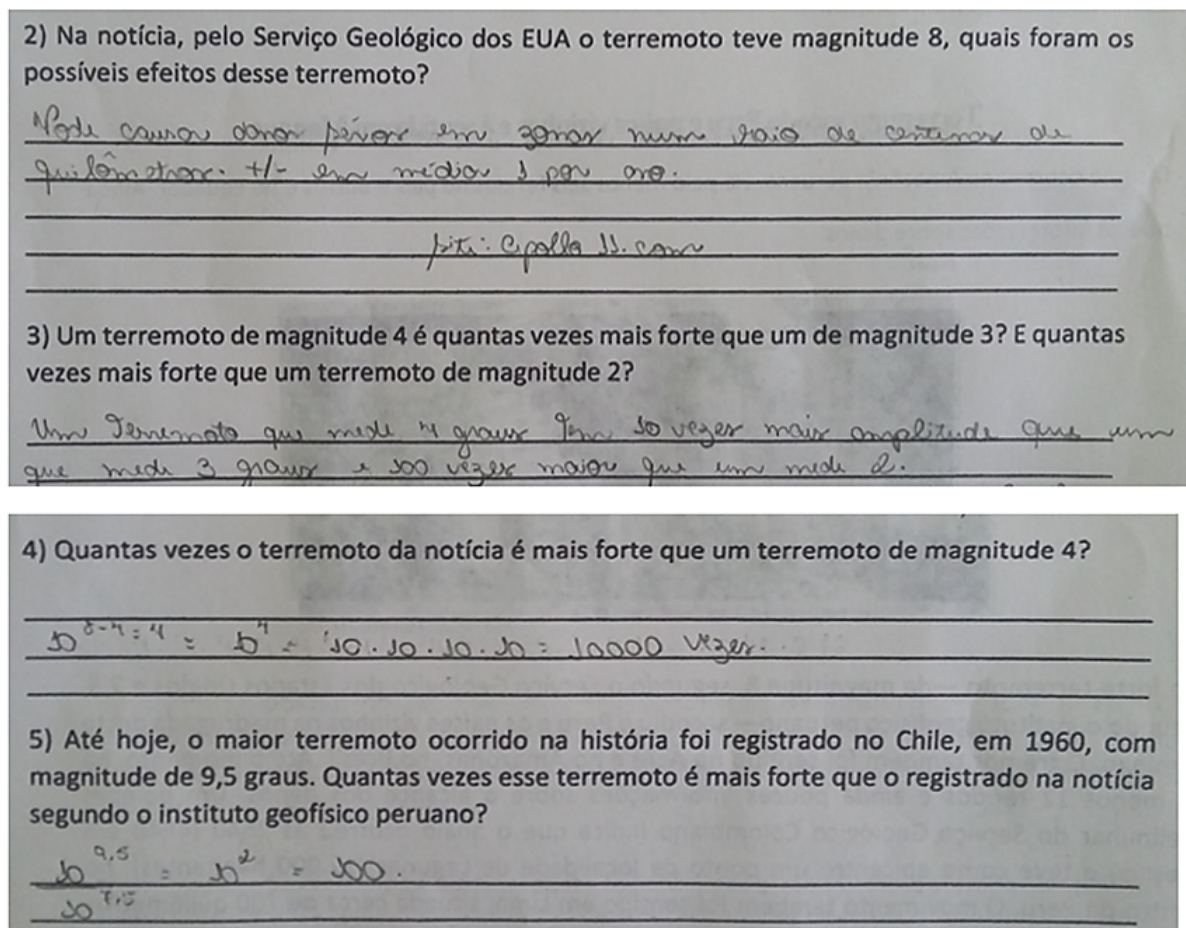 2) Na notícia, pelo Serviço Geológico dos EUA o terremoto teve magnitude 8, quais foram os
possíveis efeitos desse terremoto?
Pode causar danos sérios em zonas num raio de centenas de
quilômetros. +/- em média 1 por ano.
site: Apollo 11.com
3) Um terremoto de magnitude 4 é quantas vezes mais forte que um de magnitude 3? E quantas
vezes mais forte que um terremoto de magnitude 2?
Um Terremoto que mede 4 graus tem 10 vezes mais amplitude que um
que mede 3 graus e 100 vezes maior que um mede 2.
4) Quantas vezes o terremoto da notícia é mais forte que um terremoto de magnitude 4?
10^8-4=4 = 10^4 = 10.10.10.10 = 10000 vezes.
5) Até hoje, o maior terremoto ocorrido na história foi registrado no Chile, em 1960, com
magnitude de 9,5 graus. Quantas vezes esse terremoto é mais forte que o registrado na notícia
segundo o instituto geofísico peruano?
10^9,5 = 10^2 = 100.
10^7,5